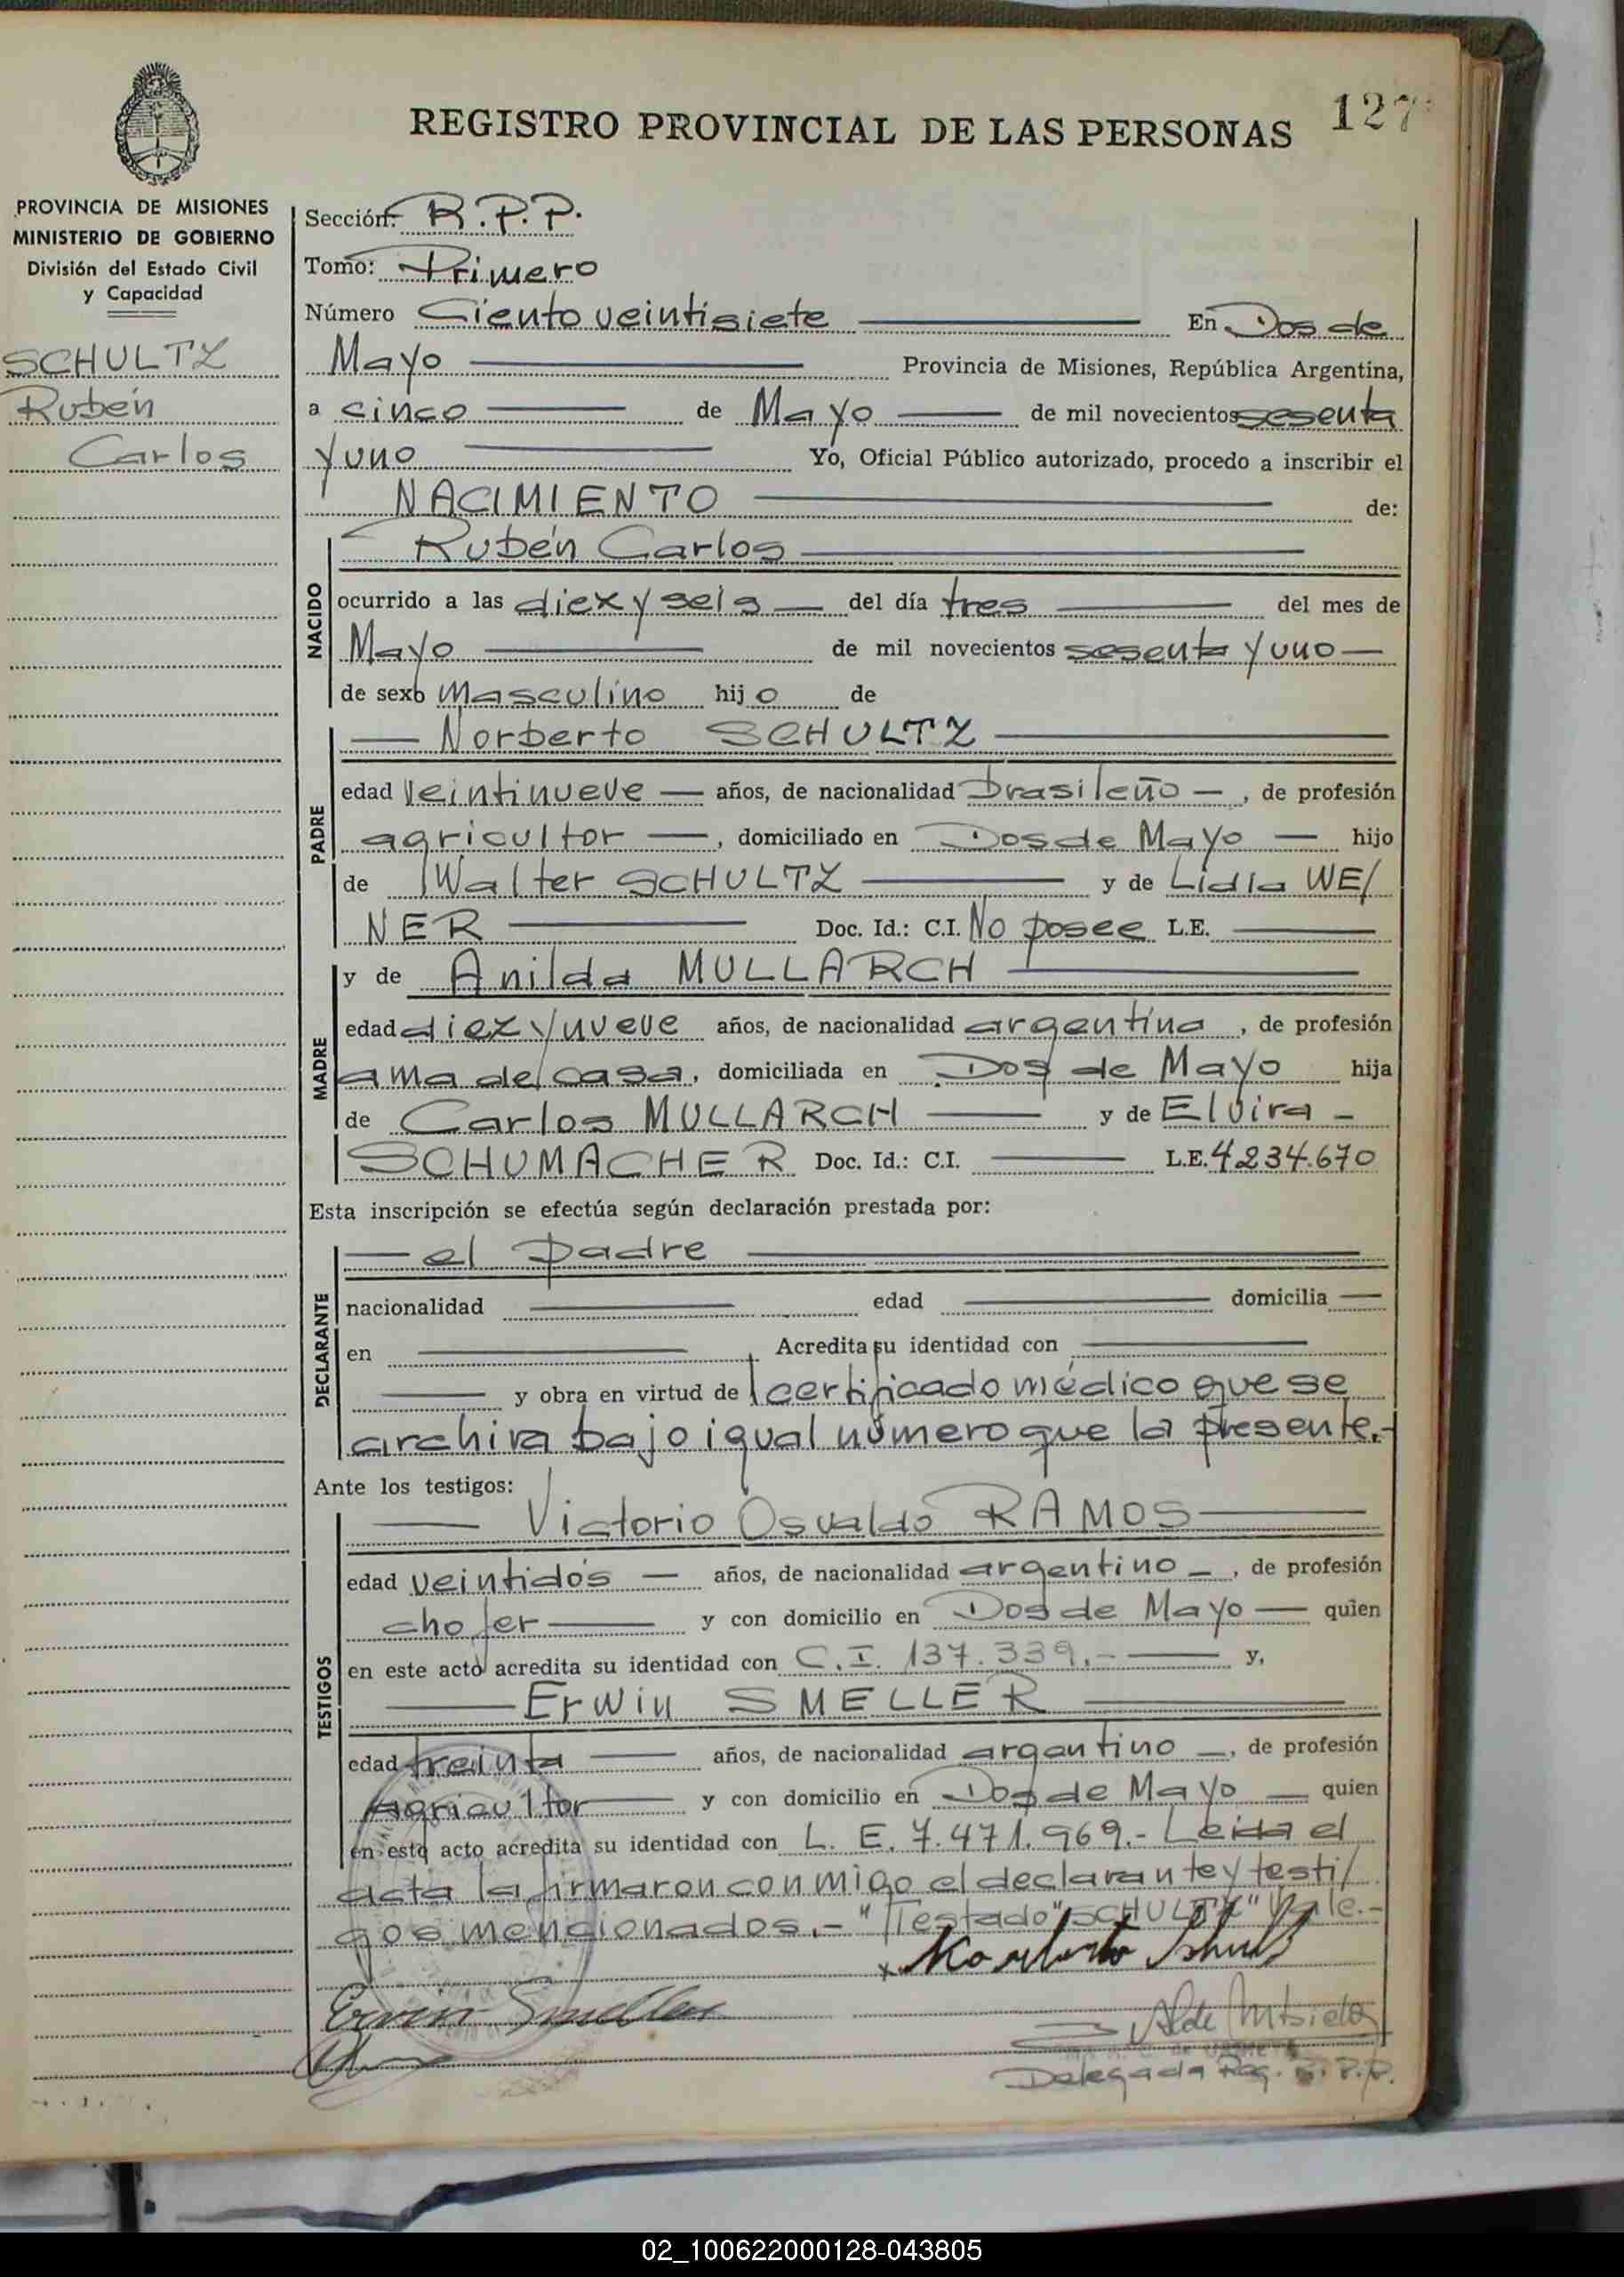 REGISTRO PROVINCIAL DE LAS PERSONAS 127
PROVINCIA DE MISIONES
MINISTERIO DE GOBIERNO
División del Estado Civil
y Capacidad
SCHULTZ
Rubén
Carlos
Sección: R.P.P.
Tomo: Primero
Número Ciento veintisiete En Dos de
Mayo Provincia de Misiones, República Argentina,
a cinco de Mayo de mil novecientos sesenta
y uno Yo, Oficial Público autorizado, procedo a inscribir el
NACIMIENTO de:
NACIDO
Rubén Carlos
ocurrido a las diez y seis del día tres del mes de
Mayo de mil novecientos sesenta y uno
de sexo masculino hijo de
PADRE
Norberto SCHULTZ
edad veintinueve años, de nacionalidad brasileño, de profesión
agricultor, domiciliado en Dos de Mayo hijo
de Walter SCHULTZ y de Lidia WE/
NER Doc. Id.: C.I. No posee L.E.
MADRE
y de Anilda MULLARCH
edad diez y nueve años, de nacionalidad argentina, de profesión
ama de casa, domiciliada en Dos de Mayo hija
de Carlos MULLARCH y de Elvira
SCHUMACHER Doc. Id.: C.I. L.E. 4234.670
Esta inscripción se efectúa según declaración prestada por:
DECLARANTE
el padre
nacionalidad edad domicilia
en Acredita su identidad con
y obra en virtud de l certificado médico que se
archiva bajo igual número que la presente.-
Ante los testigos:
TESTIGOS
Victorio Osvaldo RAMOS
edad veintidós años, de nacionalidad argentino, de profesión
chofer y con domicilio en Dos de Mayo quien
en este acto acredita su identidad con C.I. 137.339.- y,
Erwin SMELLER
edad treinta años, de nacionalidad argentino, de profesión
agricultor y con domicilio en Dos de Mayo quien
en este acto acredita su identidad con L.E. 7.471.969.- Leida el
acta la firmaron conmigo el declarante y testi/
gos mencionados.- "Testado" "SCHULTZ" Vale.-
Norberto Schultz
Erwin Smeller
Delegada Reg. R.P.P.
02_100622000128-043805